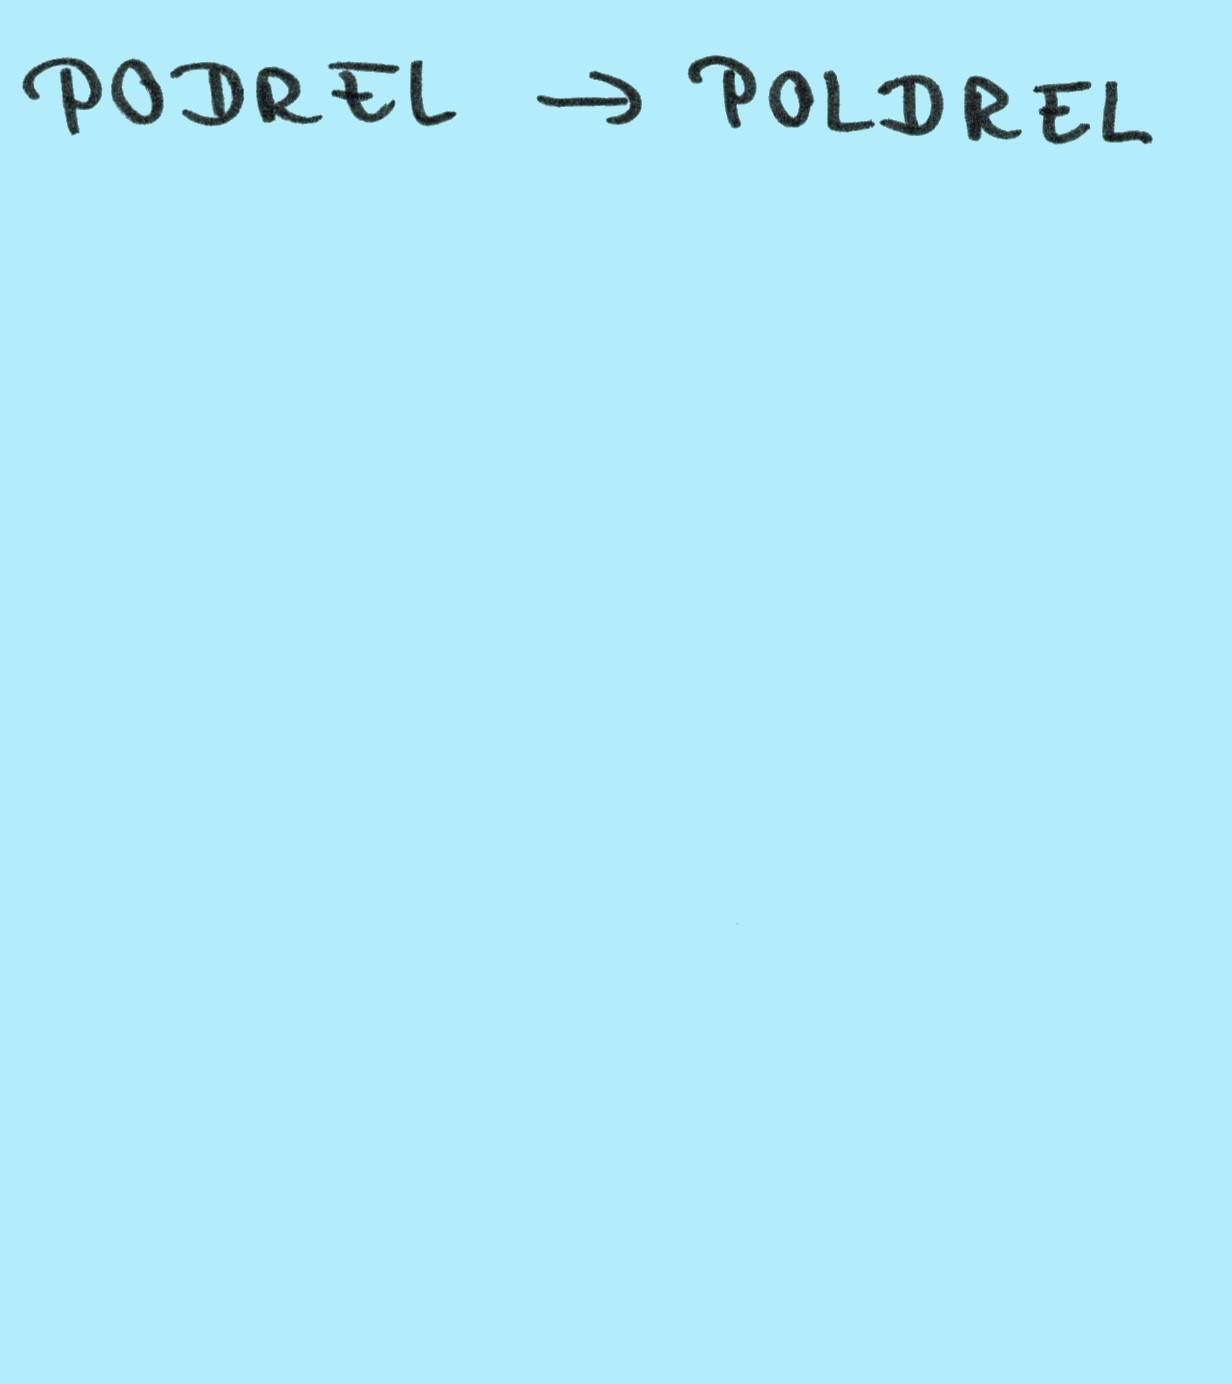 PODREL → POLDREL